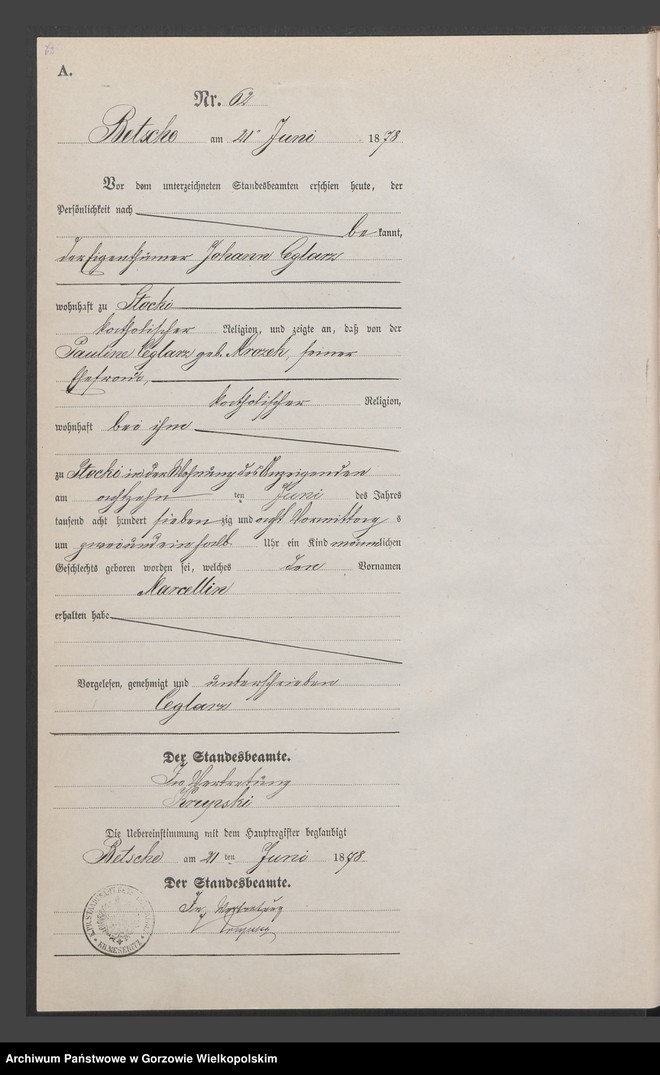 A.
Nr. 62
Betsche am 21ten Juni 1878
Vor dem unterzeichneten Standesbeamten erschien heute, der
Persönlichkeit nach
bekannt,
der Eigenthümer Johann Ceglarz
wohnhaft zu Stocki
katholischer Religion, und zeigte an, daß von der
Pauline Ceglarz geb. Mrozek, seiner
Ehefrau,
katholischer Religion,
wohnhaft bei ihm
zu Stocki in der Wohnung des Anzeigenden
am achtzehn ten Juni des Jahres
tausend acht hundert siebenzig und acht Vormittags
um zweiundeinhalb Uhr ein Kind männlichen
Geschlechts geboren worden sei, welches den Vornamen
Marcellin
erhalten habe
Vorgelesen, genehmigt und unterschrieben
Ceglarz
Der Standesbeamte.
In Vertretung
Die Uebereinstimmung mit dem Hauptregister beglaubigt
Betsche am 21 ten Juni 1878.
Der Standesbeamte.
In Vertretung
KR. MESERITZ
Archiwum Państwowe w Gorzowie Wielkopolskim